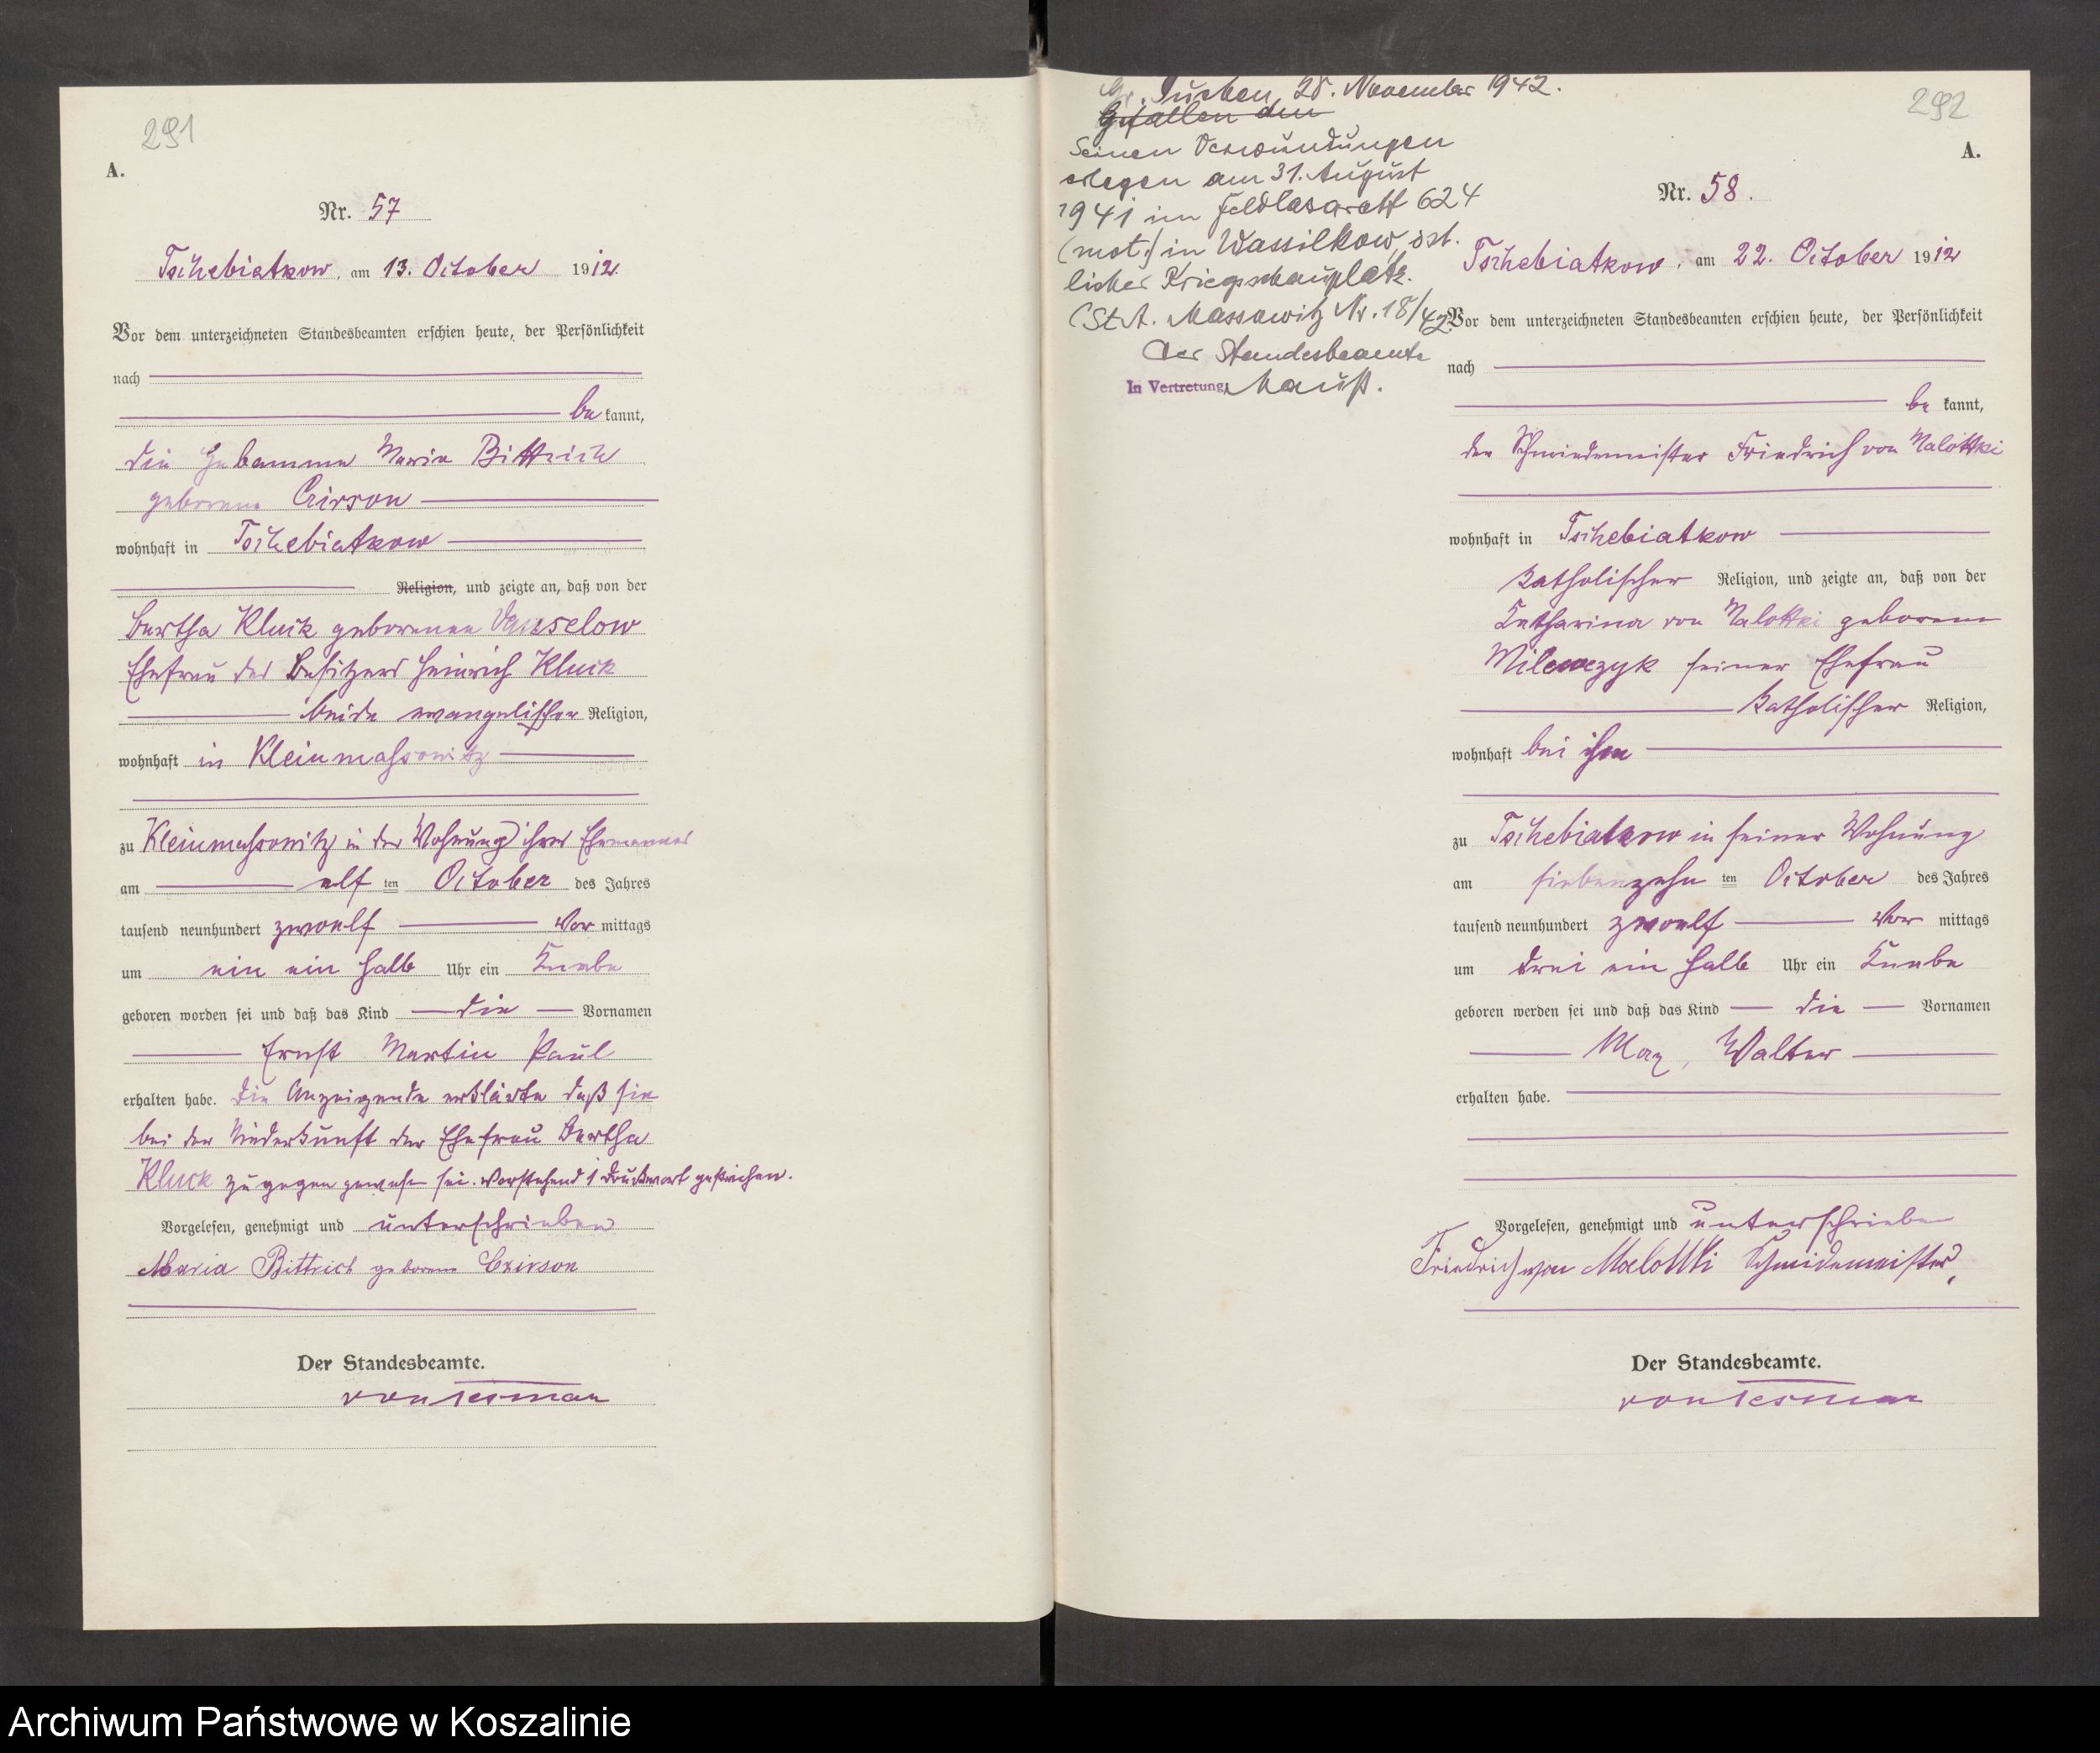 291
A.
Nr. 57
Tschebiatkow, am 13. October 1912
Vor dem unterzeichneten Standesbeamten erschien heute, der Persönlichkeit
nach
be kannt,
die Hebamme Maria Bittrich
geborene
wohnhaft in Tschebiatkow
Religion, und zeigte an, daß von der
Bertha Kluck geborenen Vanselow
Ehefrau des Besitzers Heinrich Kluck
beide evangelischer Religion,
wohnhaft in Kleinmassowitz
zu Kleinmassowitz in der Wohnung ihres Ehemannes
am elf ten October des Jahres
tausend neunhundert zwoelf Vor mittags
um ein ein halb Uhr ein Knabe
geboren worden sei und daß das Kind die Vornamen
Ernst Martin Paul
erhalten habe. Die Anzeigende erklärte daß sie
bei der Niederkunft der Ehefrau Bertha
Kluck zugegen gewesen sei. Vorstehend 1 Druckwort gestrichen.
Vorgelesen, genehmigt und unterschrieben
Maria Bittrich geborene
Der Standesbeamte.
von Tesmar
292
A.
Gr. Tuchen, 28. November 1942.
Gefallen den
Seinen Verwundungen
erlegen am 31. August
1941 im Feldlasarett 624
(mot.) in Wassilkow, öst.
licher Kriegsschauplatz.
(St. A. Massowitz Nr. 18/42)
Der Standesbeamte
In Vertretung
Nr. 58.
Tschebiatkow, am 22. October 1912
Vor dem unterzeichneten Standesbeamten erschien heute, der Persönlichkeit
nach
be kannt,
der Schmiedemeister Friedrich von Malottki
wohnhaft in Tschebiatkow
katholischer Religion, und zeigte an, daß von der
Katharina von Malottki geborene
Milewczyk seiner Ehefrau
katholischer Religion,
wohnhaft bei ihm
zu Tschebiatkow in seiner Wohnung
am siebenzehn ten October des Jahres
tausend neunhundert zwoelf Vor mittags
um drei ein halb Uhr ein Knabe
geboren worden sei und daß das Kind die Vornamen
Max, Walter
erhalten habe.
Vorgelesen, genehmigt und unterschrieben
Friedrich von Malottki Schmidemeister,
Der Standesbeamte.
von Tesmar
Archiwum Państwowe w Koszalinie